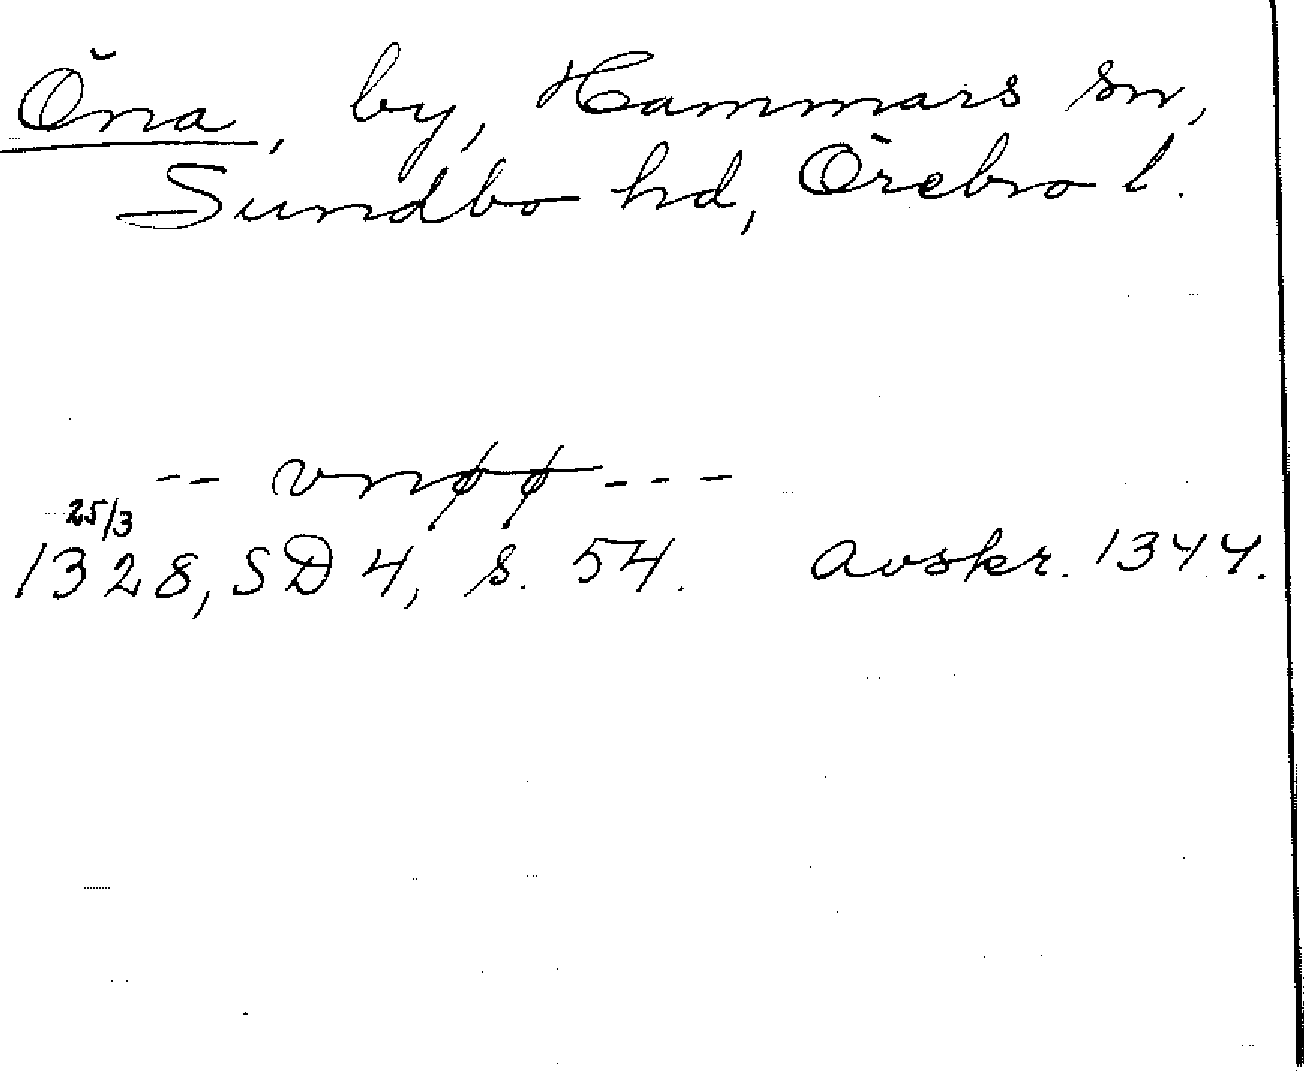 Öna, by, Hammars sn,
Sundbo hd, Örebro l.
-- vnøø---
25/3
1328, SD 4, s. 54. Avskr. 1344.